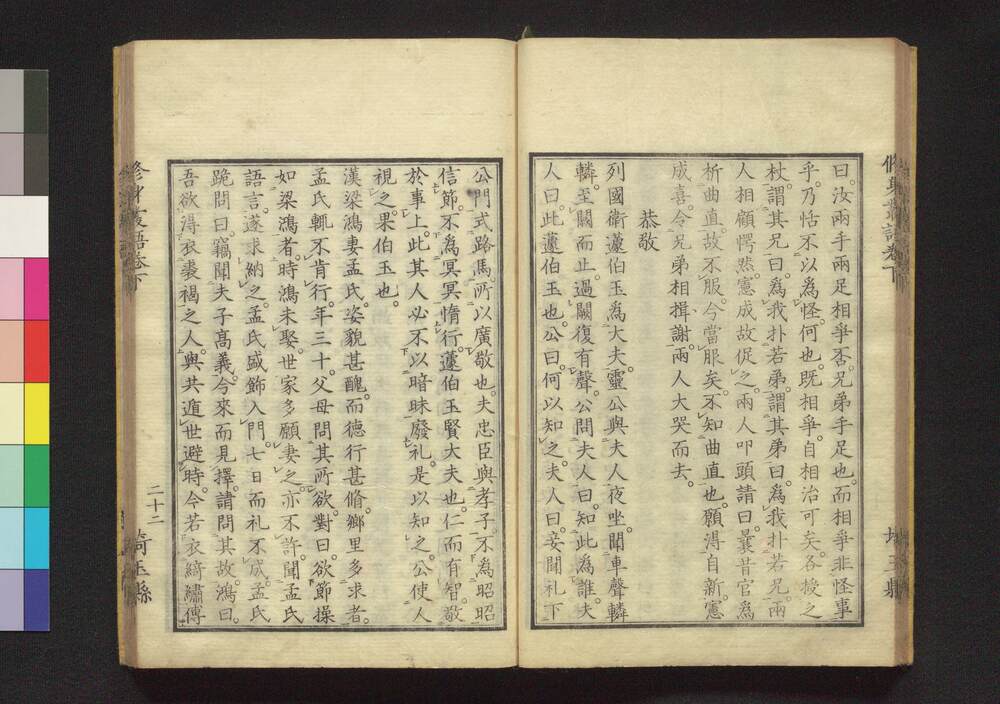 曰汝兩手兩足相爭否。兄弟手足也。而相爭非怪事
乎。乃恬不以爲怪。何也。既相爭。自相治可矣。各授之
杖。謂其兄曰。爲我扑若弟。謂其弟曰。爲我扑若兄。兩
人相顧愕然。憲成故促之。兩人叩頭請曰。曩昔官爲
析曲直。故不服。今當服矣。不知曲直也。願淂自新。憲
成喜。令兄弟相揖謝。兩人大哭而去。
恭敬
列國衛蘧伯玉爲大夫。靈公與夫人夜坐。聞車聲轔
轔。至闕而止。過闕復有聲。公問夫人曰。知此爲誰。夫
人曰。此蘧伯玉也。公曰何以知之。夫人曰。妾聞礼下
公門式路馬。所以廣敬也。夫忠臣與孝子。不爲昭昭
信節。不爲冥冥惰行。蘧伯玉賢大夫也。仁而有智。敬
於事上。此其人必不以暗昧廢礼。是以知之。公使人
視之果伯玉也。
漢梁鴻妻孟氏。姿貌甚醜。而德行甚脩。鄉里多求者。
孟氏輒不肯行。年三十。父母問其所欲。對曰。欲節操
如梁鴻者。時鴻未娶。世家多願妻之。亦不許。聞孟氏
語言。遂求納之。孟氏盛飾入門。七日而礼不成。孟氏
跪問曰。竊聞夫子高義。今來而見擇。請問其故。鴻曰。
吾欲淂衣裘褐之人。與共遁世避時。今若衣綺繡傅
二十二
埼玉縣